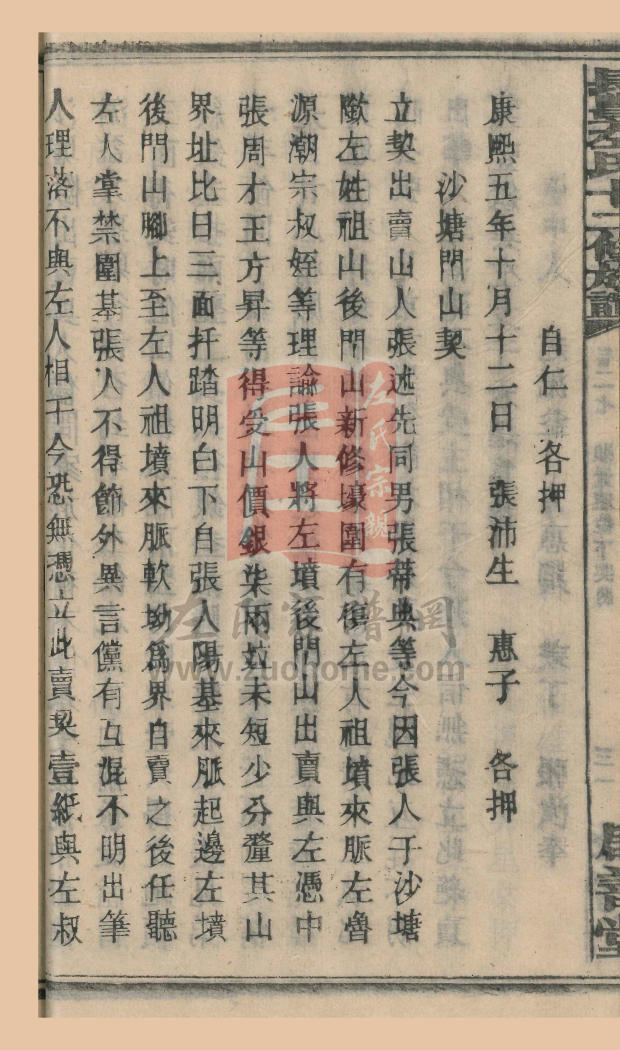 自仁　各押
康熙五年十月十二日　張沛生　惠子　各押
沙塘門山契
立契出賣山人張述先同男張蒂典等今因張人于沙塘
歐左姓祖山後門山新修壕圍有傷左人祖墳來脈左魯
源潮宗叔姪等理論張人將左墳後門山出賣與左憑中
張周才王方昇等得受山價銀柒兩並未短少分釐其山
界址比日三面扦踏明白下自張人陽基來脈起邊左墳
後門山腳上至左人祖墳來脈軟坳為界自賣之後任聽
左人掌禁圍基張人不得節外異言儻有互混不明出筆
人理落不與左人相干今恐無憑立此賣契壹紙與左叔
左氏宗親
左氏家譜網
www.zuohome.com